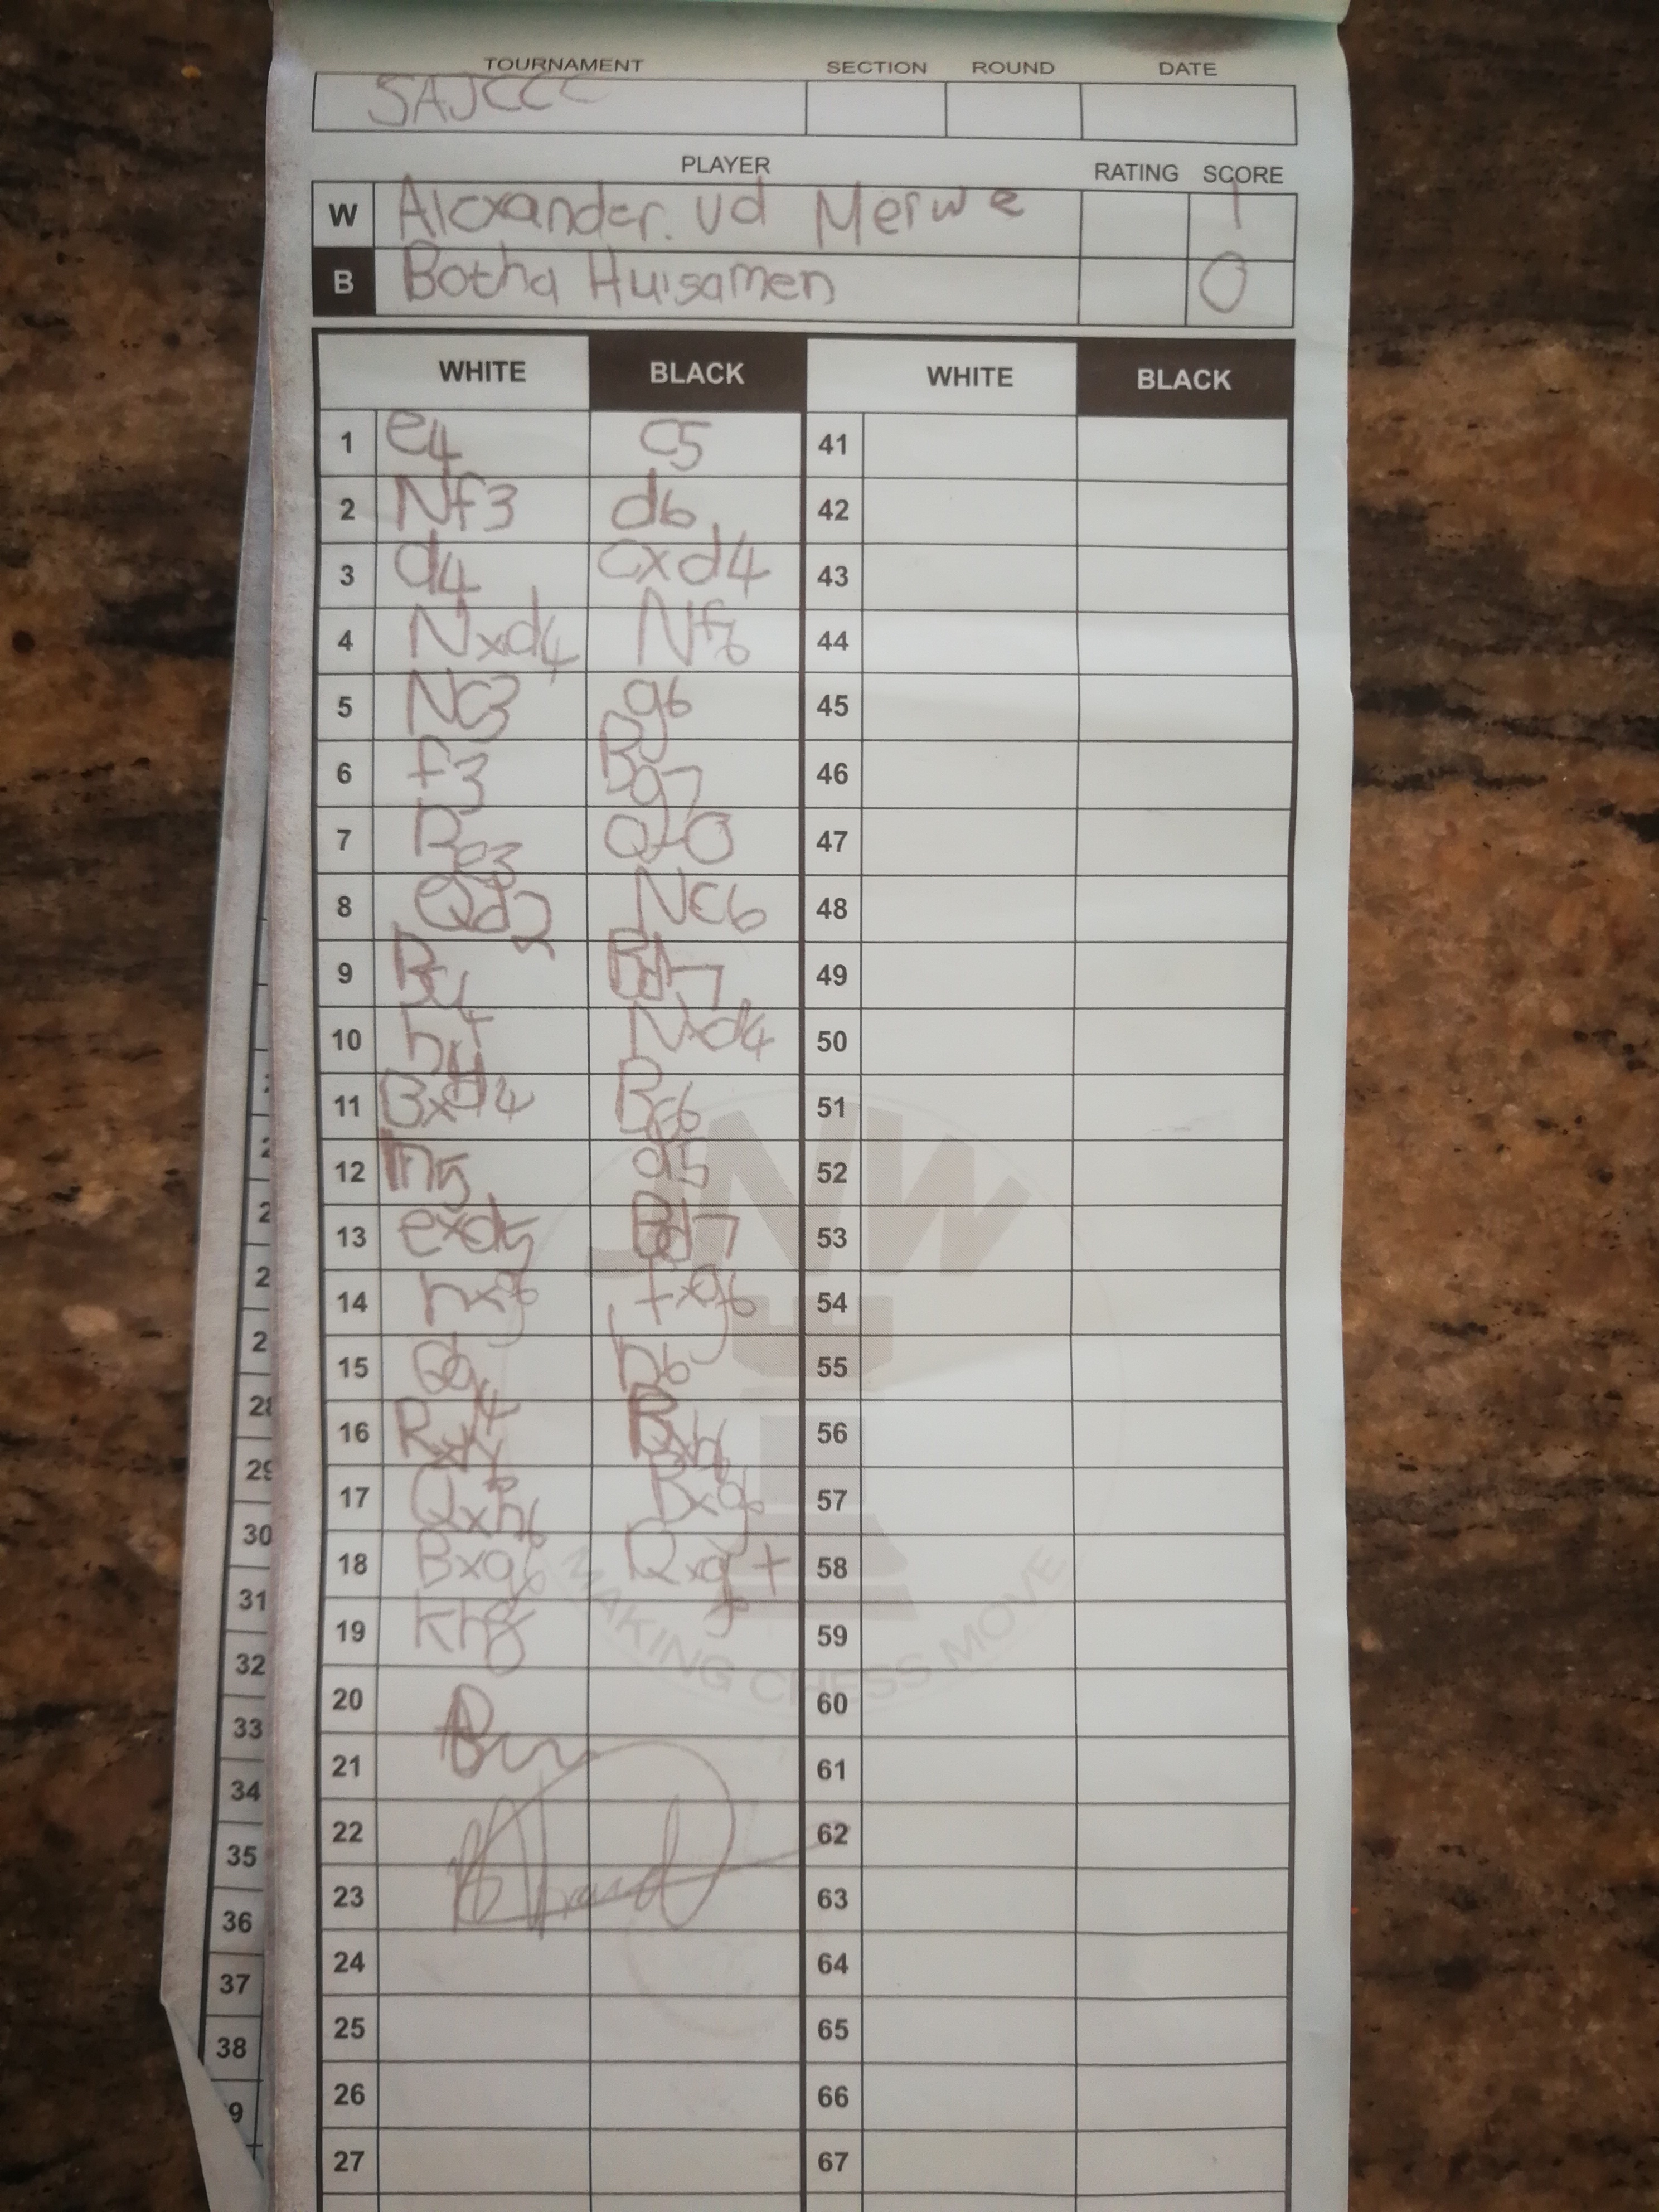 TOURNAMENT SECTION ROUND DATE
SAJCCC
PLAYER RATING SCORE
W Alexander. vd Merwe 1
B Botha Huisamen 0
WHITE BLACK WHITE BLACK
1 e4 c5 41
2 Nf3 d6 42
3 d4 cxd4 43
4 Nxd4 Nf6 44
5 Nc3 g6 45
6 f3 Bg7 46
7 Be3 0-0 47
8 Qd2 Nc6 48
9 Bc4 Bd7 49
10 h4 Nxd4 50
11 Bxd4 Bc6 51
12 h5 d5 52
13 exd5 Bd7 53
14 hxg6 fxg6 54
15 h6 55
16 Bxh6 56
17 Qxh6 57
18 Bxg6 58
19 59
20 60
21 61
22 62
23 63
24 64
25 65
26 66
27 67
JNW
MAKING CHESS MOVE
28
29
30
31
32
33
34
35
36
37
38